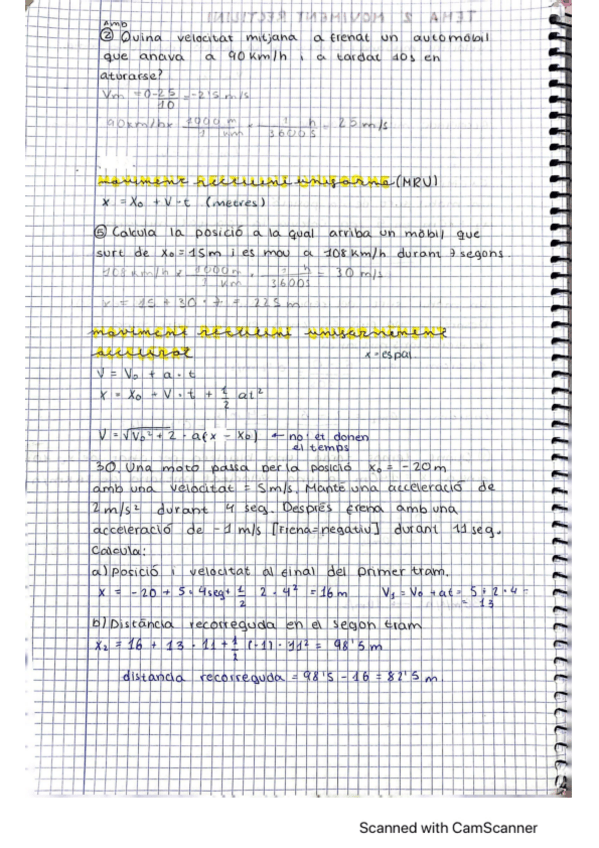 Amb
② Quina velocitat mitjana a frenat un automòbil
que anava a 90 km/h i a tardat 10s en
aturarse?
Vm = 0-25/10 = -2'5 m/s
90km/h x 1000 m/1 km · 1 h/3600s = 25 m/s
moviment rectilini uniforme (MRU)
x = x0 + V · t (metres)
⑤ Calcula la posició a la qual arriba un mòbil que
surt de x0 = 15m i es mou a 108 km/h durant 7 segons.
108 km/h x 1000m/1 km · 1 h/3600s = 30 m/s
x = 15 + 30 · 7 = 225 m
moviment rectilini uniformement
accelerat
x = espai
V = V0 + a · t
x = x0 + V · t + 1/2 at²
V = √V0² + 2 · a(x - x0) ← no et donen
el temps
30. Una moto passa per la posició x0 = -20m
amb una velocitat = 5m/s. Manté una acceleració de
2 m/s² durant 4 seg. Després frena amb una
acceleració de -1 m/s [Frena=negatiu] durant 11 seg.
Calcula:
a) Posició i velocitat al final del primer tram.
x = -20 + 5 · 4seg + 1/2 2 · 4² = 16 m V1 = V0 + at = 5 + 2 · 4 =
= 13
b) Distància recorreguda en el segon tram
x2 = 16 + 13 · 11 + 1/2 (-1) · 11² = 98'5 m
distancia recorreguda = 98'5 - 16 = 82'5 m
Scanned with CamScanner